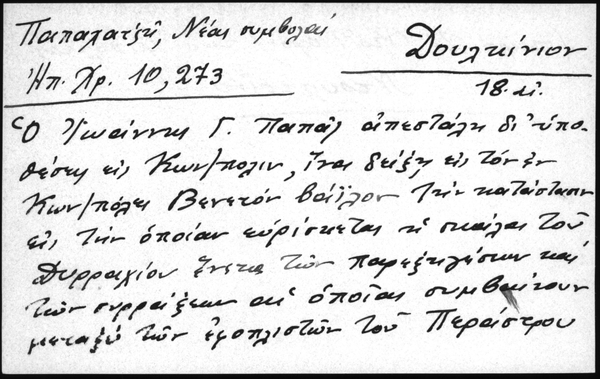 Παπαλατζῆ, Νέαι συμβολαί
Δουλκίνιον
Ἠπ. Χρ. 10, 273
18. αἰ.
Ὁ Ἰωάννης Γ. Παπᾶς ἀπεστάλη δι' ὑπο-
θέσεις εἰς Κων/πολιν, ἵνα δείξῃ εἰς τόν ἐν
Κων/πόλει Βενετόν βάϊλον τήν κατάστασιν
εἰς τήν ὁποίαν εὑρίσκεται ἡ σκάλα τοῦ
Δυρραχίου ἕνεκα τῶν παρεξηγήσεων καί
τῶν συρράξεων αἱ ὁποῖαι συμβαίνουν
μεταξύ τῶν ἐφοπλιστῶν τοῦ Περάστρου